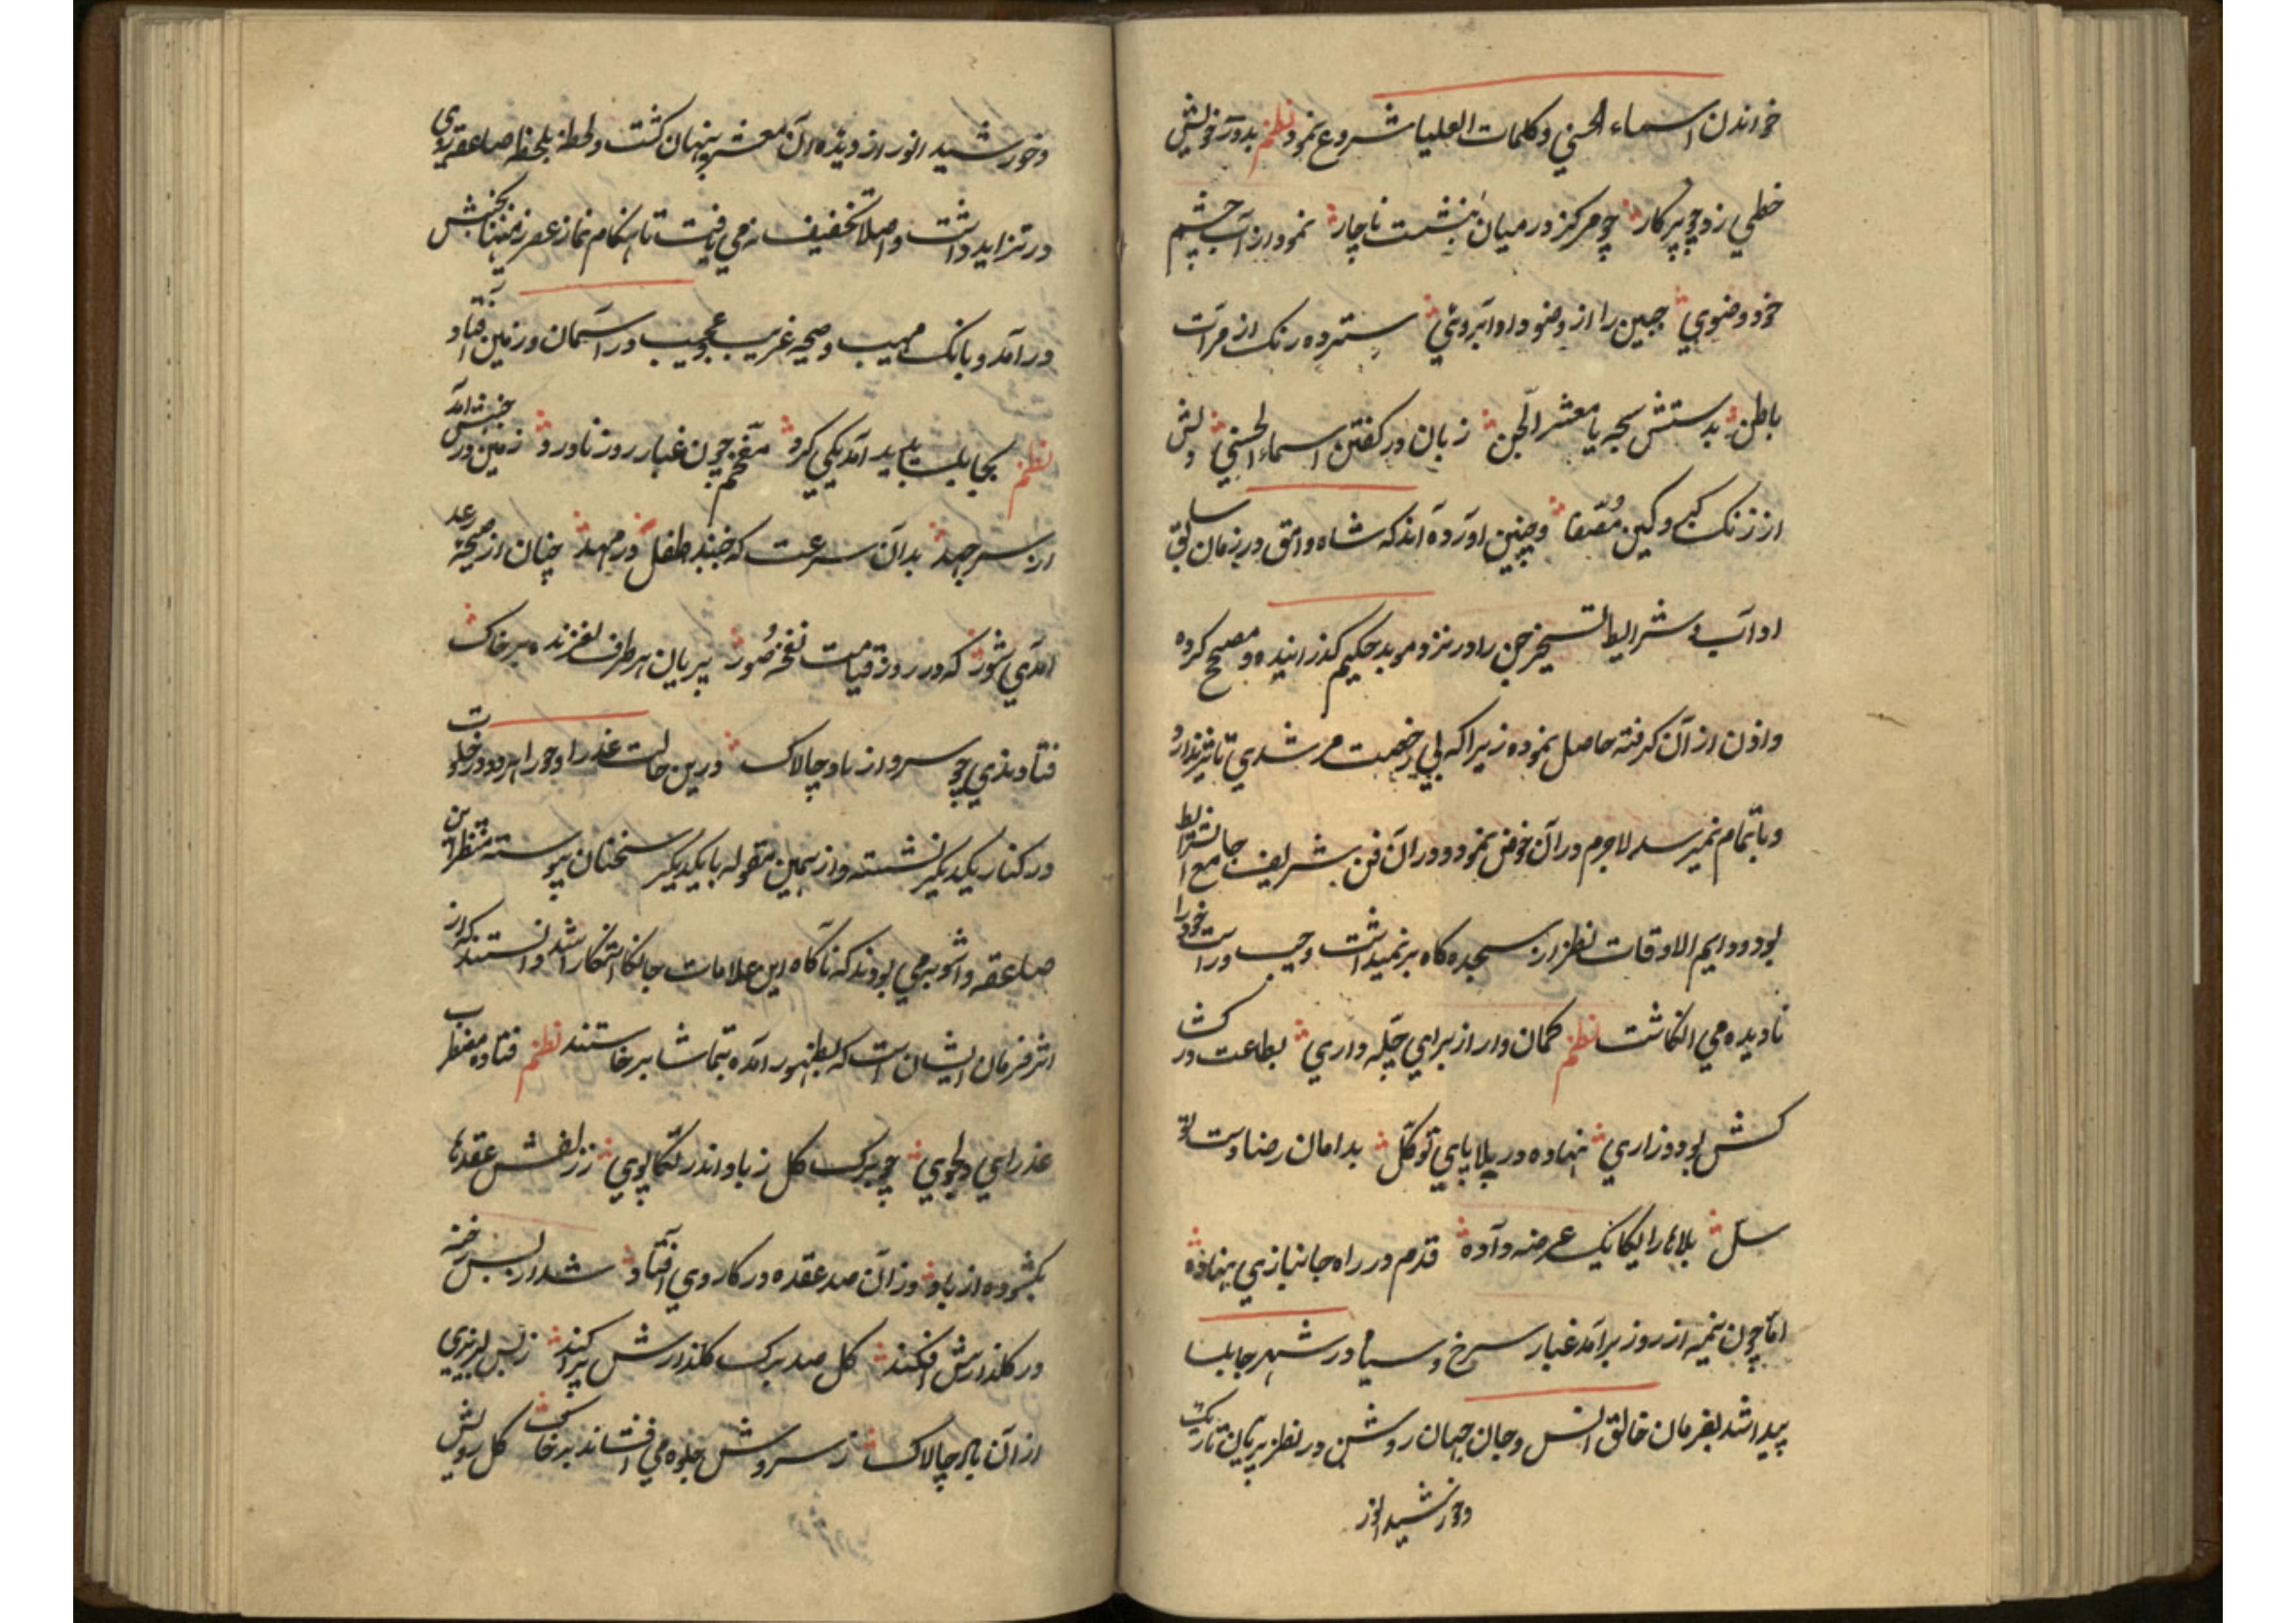 خواندن اسماء الحسني وكلمات العليا شروع نمود نظم بدور خويش
خطي زد چو پركار چو مركز در ميان بنشست ناچار نمود از آب چشم
خود وضوي جبين را از وضو داد آبروئي سترده رنك از مرآت
باطن بدستش سبحه يا معشر الجن زبان در كفتن اسماء الحسني دلش
از زنك كبر وكين مصفا وچنين آورده اند كه شاه وامق در زمان سابق
آداب وشرايط تسخير جن را در نزد موبد حكيم كذرانيده ومصحح كرده
واذن از آن كرفته حاصل نموده زيرا كه بي رخصت مرشدي تاثير ندارد
وباتمام نميرسد لاجرم در آن خوض نمود ودر آن فن شريف جامع الشرايط
بود ودايم الاوقات نظر از سجده كاه بر نميداشت وچپ وراست خود را
ناديده مي انكاشت نظم كمان وار از براي چله داري بطاعت در كشا
كش بود وزاري نهاده در بلا پاي توكل بدامان رضا دست تو
سل بلاها را يكايك عرضه داده قدم در راه جانبازي نهاده
اما چون نيمه از روز برآمد غبار سرخ وسياه در شهر جابلسا
پيدا شد بفرمان خالق انس وجان جهان روشن در نظر پريان تاريك
وخورشيد انور
وخورشيد انور از ديده آن معشر پنهان كشت ولحظه بلحظه صاعقه روي
در تزايد داشت واصلا تخفيف نه مي يافت تا هنكام نماز عصر زمين بجنبش
در آمد وبانك مهيب وصيحه غريب وعجيب در آسمان وزمين افتاد
نظم بجابلسا پديد آمد يكي كرد چون غبار روز ناورد زمين در جنبش آمد
از سر جهد بدان سرعت كه جنبد طفل در مهد چنان از صيحه رعد
آمدي شور كه در روز قيامت نفخه صور پريان هر طرف لغزنده بر خاك
فتادندي چو سرو از باد چالاك درين حالت عذرا وحورا هر دو در خلوت
در كنار يكديكر نشسته واز همين مقوله با يكديكر سخنان پيوسته منتظر اين
صاعقه وآشوب مي بودند كه ناكاه اين علامات جانكاه آشكارا شد دانستند كه از
اثر فرمان ايشان است كه بظهور آمده بتماشا برخاستند نظم فتاده مضطرب
عذراي دلجوي چو برك كل ز باد اندر تكاپوي ز زلفش عقدها
بكشوده از باد وزان صد عقده در كار وي افتاد شد از بس رخنه
در كلذارش افكند كل صد برك كلذارش پراكند ز بس لبريزي
از آن باد چالاك ز سروش جلوه مي افشاند بر خاك كل رويش